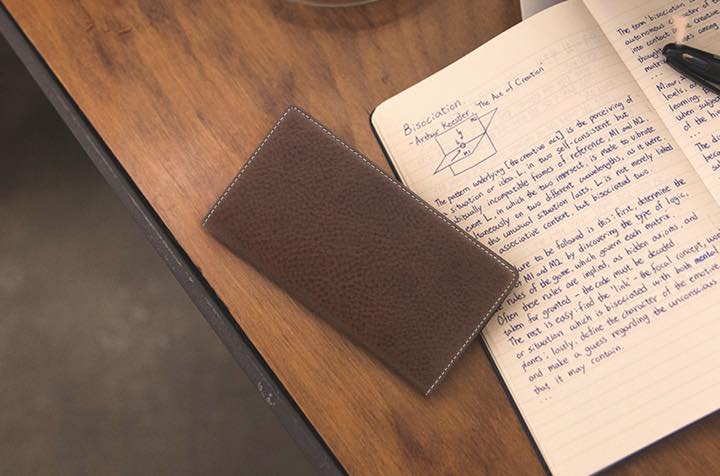 Bisociation
- Arthur Koestler 'The Act of Creation'
M2
L
M1
The pattern underlying [the creative act] is the perceiving of
situation or idea L, in two self-consistent but
habitually incompatible frames of reference, M1 and M2.
event L, in which the two intersect, is made to vibrate
simultaneously on two different wavelengths, as it were.
this unusual situation lasts, L is not merely linked
associative context, but bisociated two.
to be followed is this: first, determine the
M1 and M2 by discovering the type of logic,
rules of the game, which govern each matrix.
Often these rules are implied, as hidden axioms, and
taken for granted - the code must be decoded
The rest is easy: find the 'link' - the focal concept, word
or situation which is bisociated with both mental
planes; lastly, define the character of the emotive
and make a guess regarding the unconscious
that it may contain.
...
The term 'bisociation
autonomous character of
into contact
creative
thought
among
...
Minor,
levels,
learning,
when subject
of the
...
The